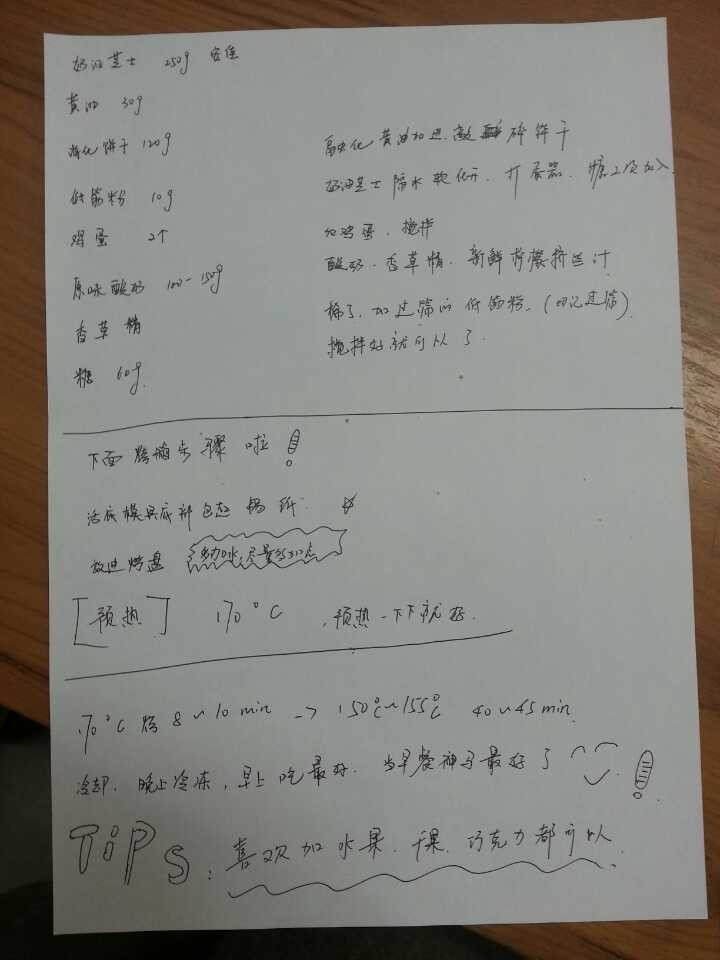 奶油芝士 250g 安佳
黄油 30g
消化饼干 120g
低筋粉 10g
鸡蛋 2个
原味酸奶 100-150g
香草精
糖 60g.
融化黄油加进敲碎饼干
奶油芝士隔水软化开. 打蛋器. 糖2次加入.
鸡蛋. 搅拌
酸奶. 香草精. 新鲜柠檬挤出汁
加过筛的低筋粉. (切记过筛)
搅拌好就可以了.
下面烤箱步骤啦!
活底模具底部包起锡纸. ☆
放进烤盘 多加水,尽量
[预热] 170°C , 预热一下下就好.
170°C 烤 8~10min → 150℃~155℃ 40~45min.
冷却. 晚上冷冻, 早上吃最好. 当早餐神马最好了 !
TiPs: 喜欢加水果. 干果. 巧克力都可以